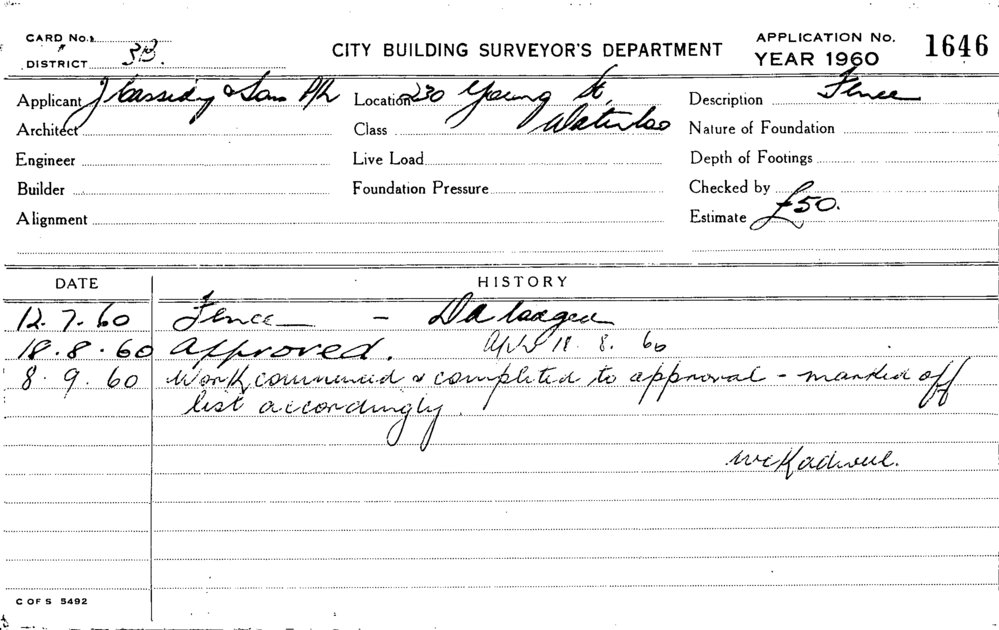 CARD No.
DISTRICT 3B.
CITY BUILDING SURVEYOR'S DEPARTMENT
APPLICATION No. 1646
YEAR 1960
Applicant J Cassidy & Son P/L
Location 230 Young St,
Waterloo
Description Fence
Architect
Class
Nature of Foundation
Engineer
Live Load
Depth of Footings
Builder
Foundation Pressure
Checked by
Alignment
Estimate £50.
DATE HISTORY
12.7.60 Fence - DA lodged
18.8.60 Approved. 18.8.60
8.9.60 Work commenced & completed to approval - marked off
list accordingly.
C OF S 5492